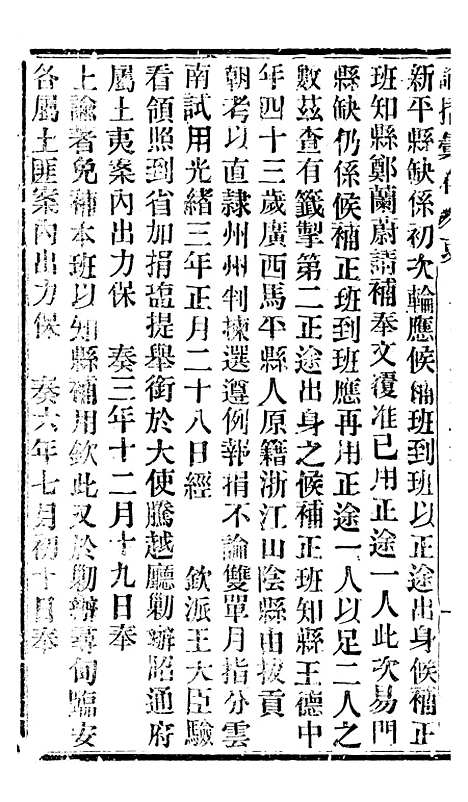 諭摺彙存
新平縣缺係初次輪應候補班到班以正途出身候補正
班知縣鄭蘭蔚請補奉文覆准已用正途一人此次易門
縣缺仍係候補正班到班應再用正途一人以足二人之
數茲查有籤掣第二正途出身之候補正班知縣王德中
年四十三歲廣西馬平縣人原籍浙江山陰縣由拔貢
朝考以直隸州州判揀選遵例報捐不論雙單月指分雲
南試用光緒三年正月二十八日經 欽派王大臣驗
看領照到省加捐鹽提舉銜於大使騰越廳勦辦昭通府
屬土夷案內出力保 奏三年十二月十九日奉
上諭著免補本班以知縣補用欽此又於勦辦尋甸臨安
各屬土匪案內出力保 奏六年七月初十日奉